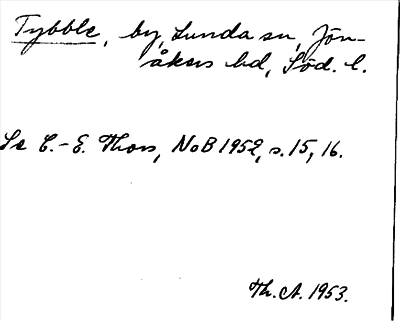 Tybble, by, Lunda sn, Jön-
åkers hd, Söd. l.
Se C.-E. Thors, NoB 1952, s. 15, 16.
Th. A. 1953.